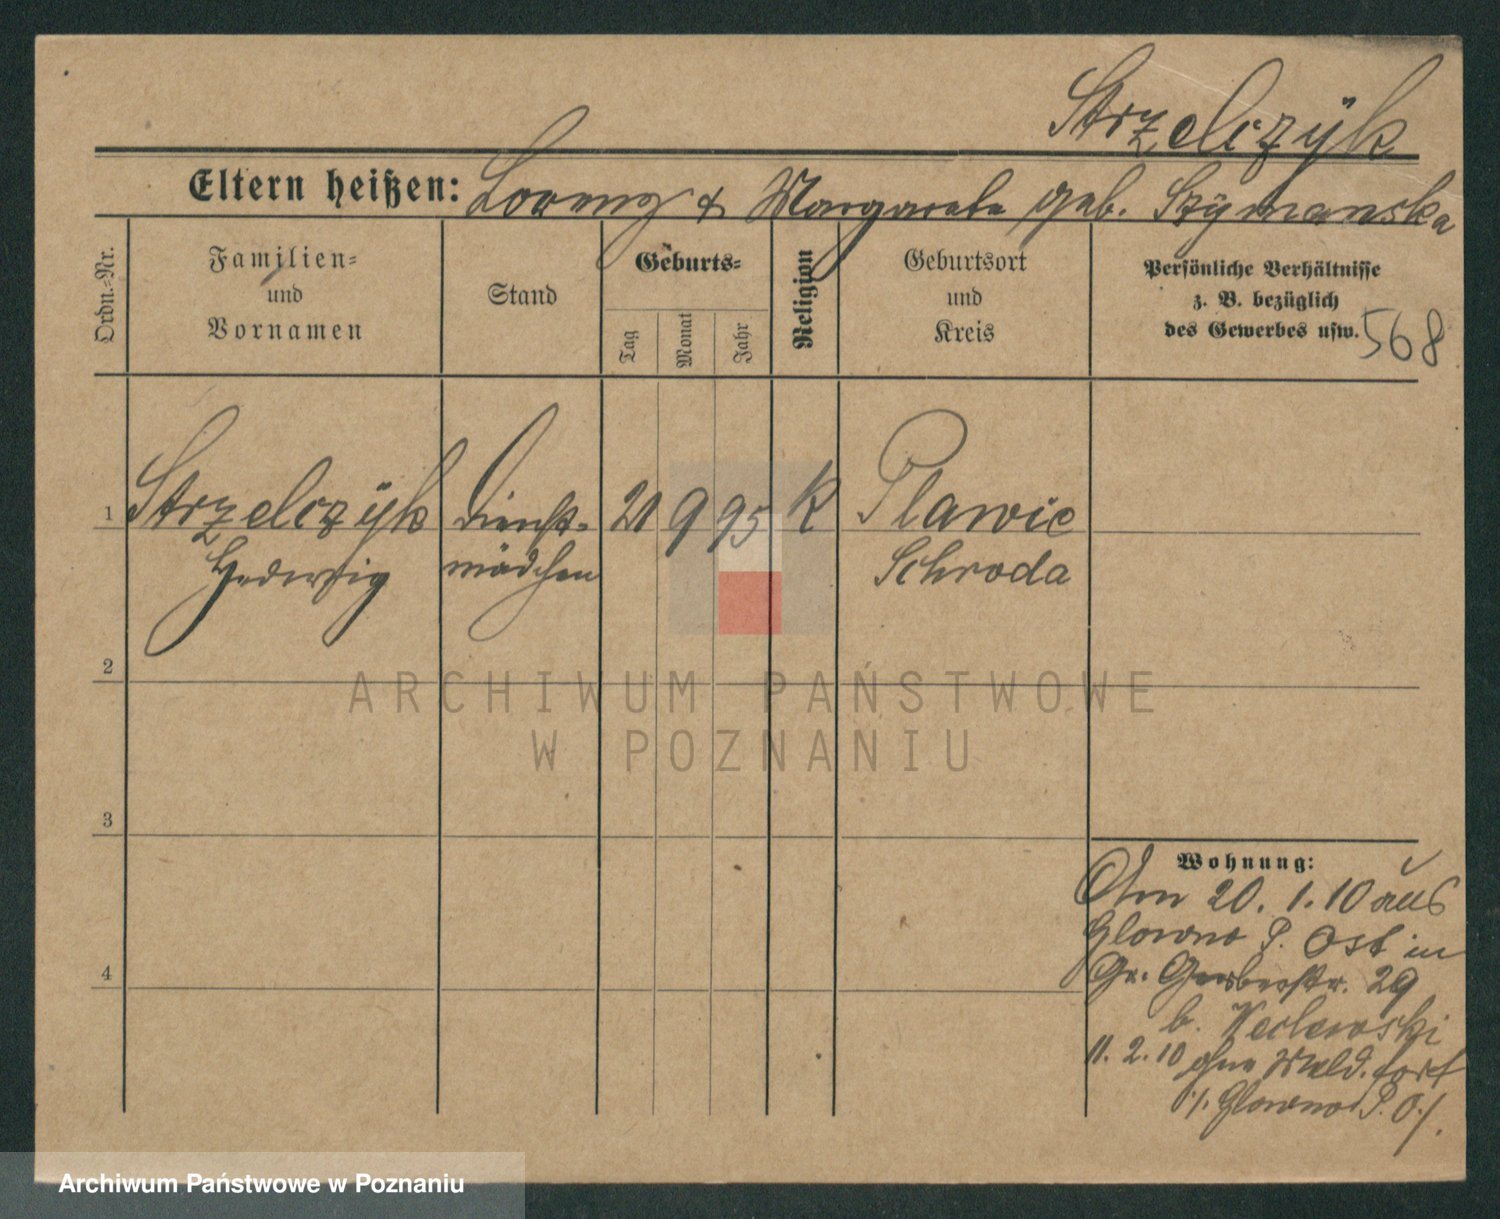 Strzelczÿk
Eltern heißen: Lorenz & Margarete geb. Szÿmanska
Ordn.=Nr.
Familien=
und
Vornamen
Stand
Geburts=
Tag
Monat
Jahr
Religion
Geburtsort
und
Kreis
Persönliche Verhältnisse
z. B. bezüglich
des Gewerbes usw.
568
1 Strzelczÿk Dienst= 21 9 95 K Plawie
Hedwig mädchen Schroda
2
3
4
ARCHIWUM PAŃSTWOWE
W POZNANIU
Wohnung:
Am 20. 1. 10 aus
Glowno P. Ost in
Gr. Gerberstr. 29
b.
11. 2. 10 ohne Meld. fort
./. Glowno P. O ./.
Archiwum Państwowe w Poznaniu